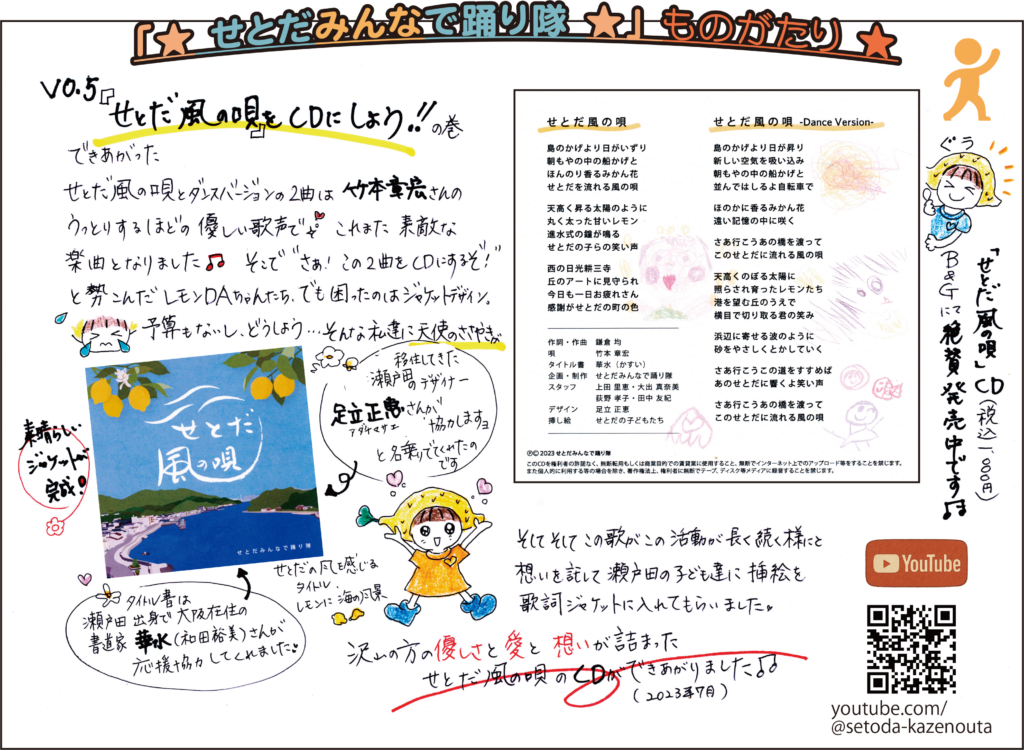 「★ せとだみんなで踊り隊 ★」ものがたり ★
VO.5『せとだ風の唄』をCDにしよう!!の巻
できあがった
せとだ風の唄とダンスバージョンの2曲は 竹本章宏さんの
うっとりするほどの 優しい歌声で これまた 素敵な
楽曲となりました♫ そこで "さぁ!この2曲をCDにするぞ!"
と勢こんだ レモンDAちゃんたち、でも困ったのはジャケットデザイン。
予算もないし、どうしよう…そんな私達に天使のささやきが
移住してきた
瀬戸田のデザイナー
足立正恵さんが
アダチマサエ
協力しますヨ
と名乗ってくれたの
です
素晴らしい
ジャケットが
完成!
せとだ
風の唄
せとだみんなで踊り隊
せとだの風を感じる
タイトル、
レモンに海の風景
タイトル書は
瀬戸田出身で大阪在住の
書道家 華水(和田裕美)さんが
応援協力してくれました
せとだ風の唄
島のかげより日がいずり
朝もやの中の船かげと
ほんのり香るみかん花
せとだを流れる風の唄
天高く昇る太陽のように
丸く太った甘いレモン
進水式の鐘が鳴る
せとだの子らの笑い声
西の日光耕三寺
丘のアートに見守られ
今日も一日お疲れさん
感謝がせとだの町の色
作詞・作曲 鎌倉 均
唄 竹本 章宏
タイトル書 華水(かすい)
企画・制作 せとだみんなで踊り隊
スタッフ 上田 里恵・大出 真奈美
荻野 孝子・田中 友紀
デザイン 足立 正恵
挿し絵 せとだの子どもたち
せとだ風の唄 -Dance Version-
島のかげより日が昇り
新しい空気を吸い込み
朝もやの中の船かげと
並んではしるよ自転車で
ほのかに香るみかん花
遠い記憶の中に咲く
さあ行こうあの橋を渡って
このせとだに流れる風の唄
天高くのぼる太陽に
照らされ育ったレモンたち
港を望む丘のうえで
横目で切り取る君の笑み
浜辺に寄せる波のように
砂をやさしくとかしていく
さあ行こうこの道をすすめば
あのせとだに響くよ笑い声
さあ行こうあの橋を渡って
このせとだに流れる風の唄
Ⓟ© 2023 せとだみんなで踊り隊
このCDを権利者の許諾なく、無断転用もしくは商業目的での賃貸業に使用すること、無断でインターネット上でのアップロード等をすることを禁じます。
また個人的に利用する等の場合を除き、著作権法上、権利者に無断でテープ、ディスク等メディアに録音することを禁じます。
ぐぅ
「せとだ風の唄」CD(税込1,100円)
B&Gにて絶賛発売中です♫
そしてそして この歌がこの活動が長く続く様にと
想いを託して瀬戸田の子ども達に挿絵を
歌詞ジャケットに入れてもらいました。
沢山の方の優しさと愛と想いが詰まった
せとだ風の唄のCDができあがりました♫
(2023年7月)
YouTube
youtube.com/
@setoda-kazenouta